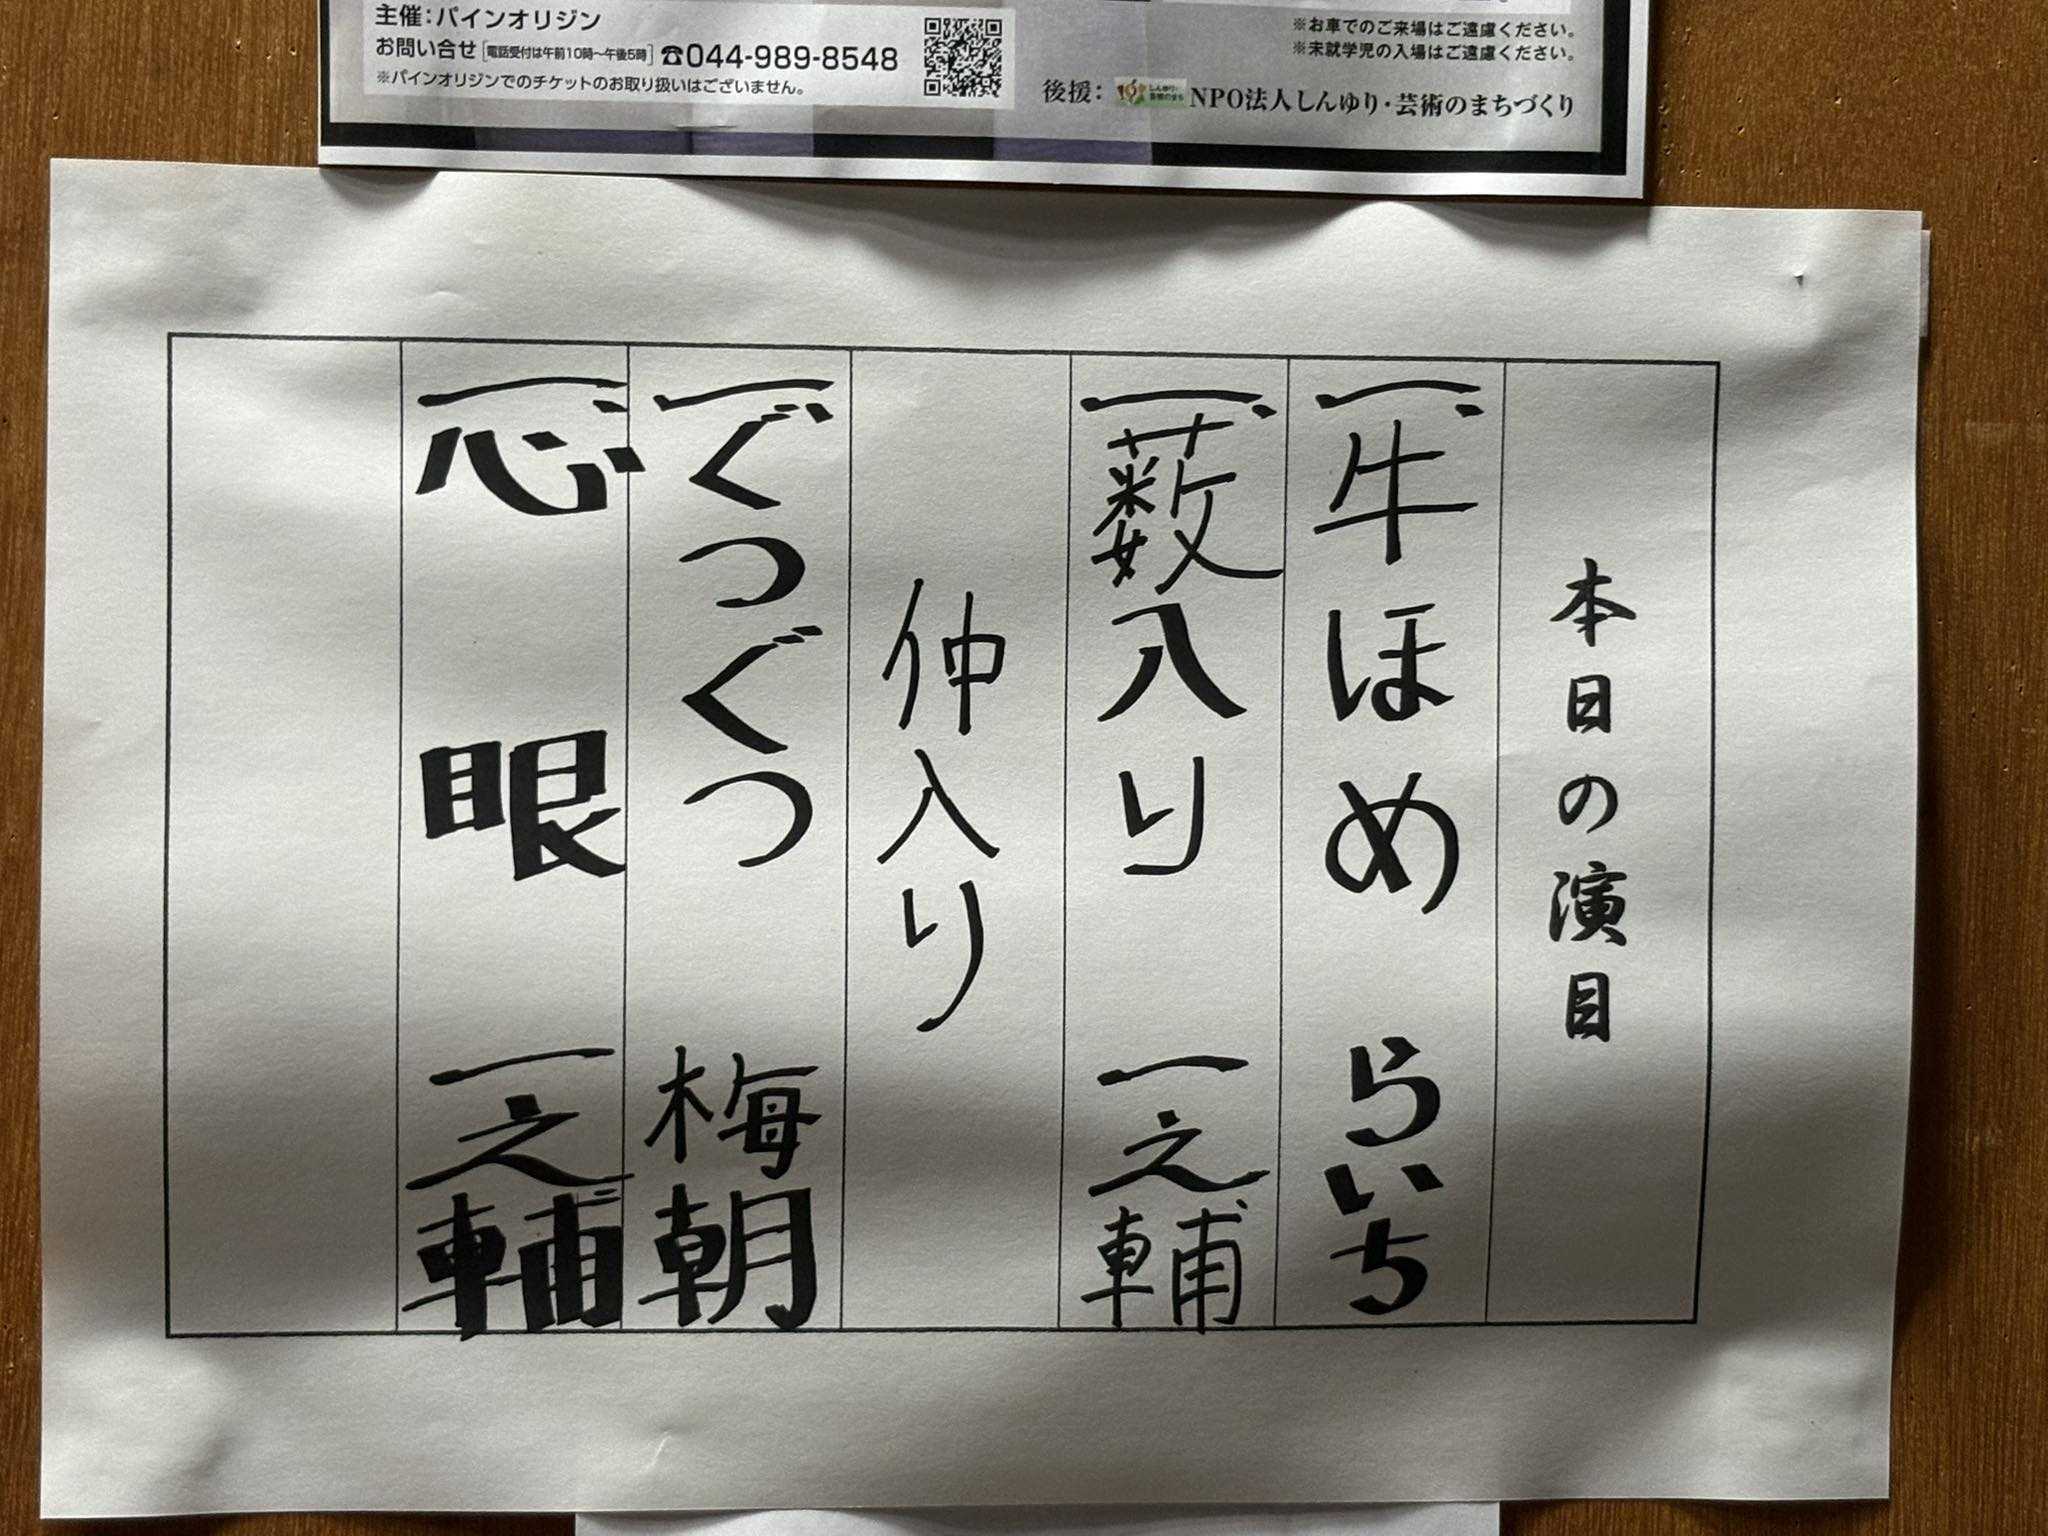 主催：パインオリジン
お問い合せ［電話受付は午前10時～午後5時］☎044-989-8548
※パインオリジンでのチケットのお取り扱いはございません。
※お車でのご来場はご遠慮ください。
※未就学児の入場はご遠慮ください。
後援： しんゆり・芸術のまち NPO法人しんゆり・芸術のまちづくり
本日の演目
一、牛ほめ らいち
一、薮入り 一之輔
仲入り
一、ぐつぐつ 梅朝
一、心眼 一之輔